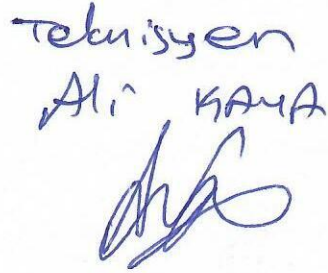 Teknisyen
Ali KAYA